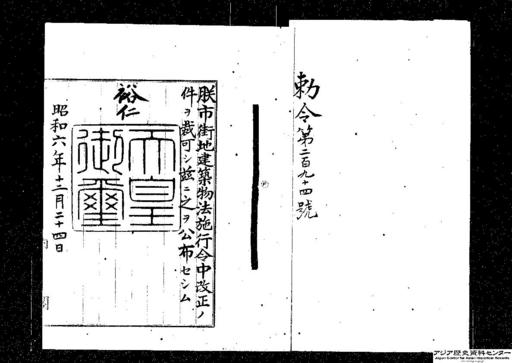 勅令第二百九十四號
朕市街地建築物法施行令中改正ノ
件ヲ裁可シ茲ニ之ヲ公布セシム
裕仁
天皇
御璽
昭和六年十二月二十四日
アジア歴史資料センター
Japan Center for Asian Historical Records